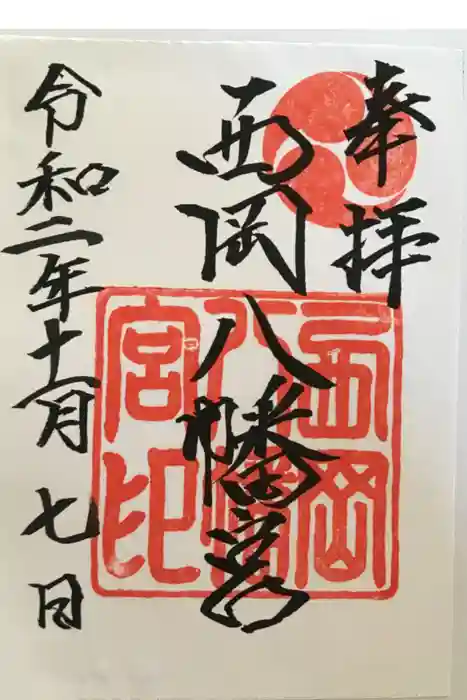 奉拝
西岡八幡宮
西岡
八幡
宮印
令和二年十一月七日